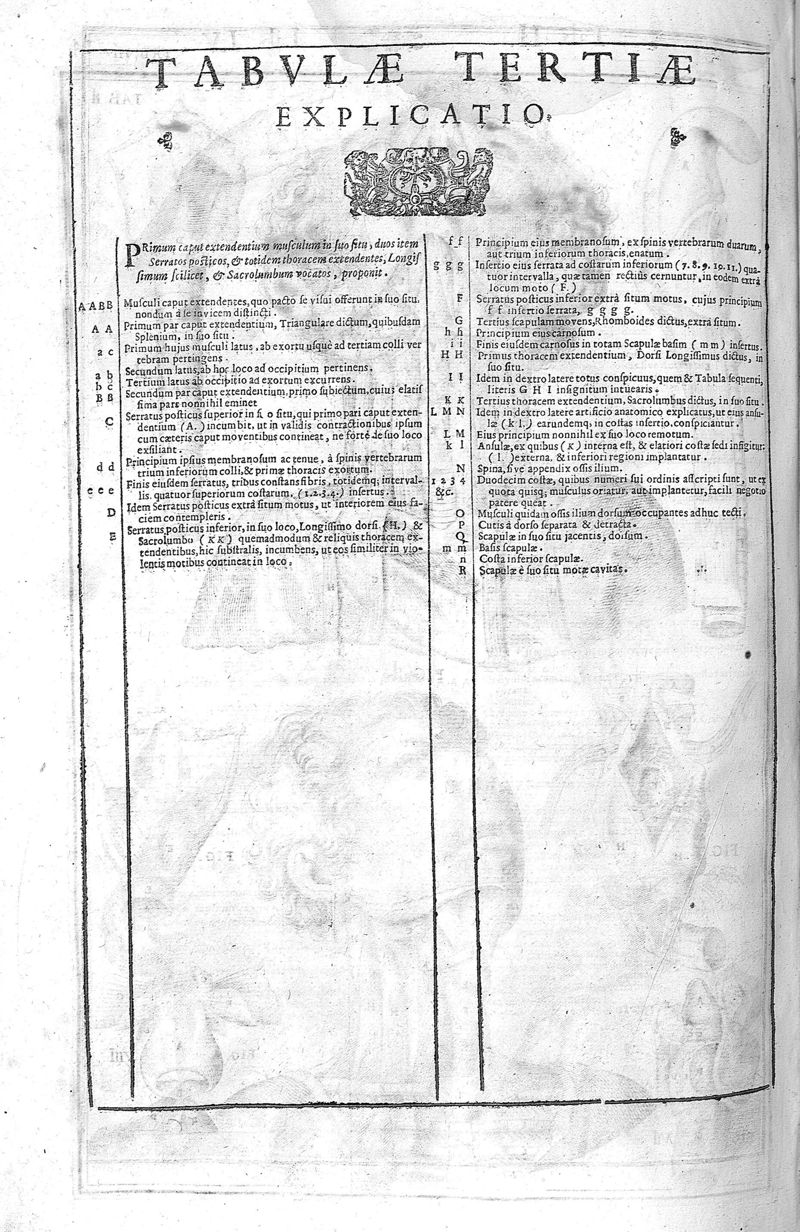 TABVLÆ TERTIÆ
EXPLICATIO.
PRimum caput extendentium musculum in suo situ, duos item
Serratos posticos, & totidem thoracem extendentes, Longis
simum scilicet, & Sacrolumbum vocatos, proponit.
A A B B Musculi caput extendentes, quo pacto se visui offerunt in suo situ.
nondum à se invicem distincti.
A A Primum par caput extendentium, Triangulare dictum, quibusdam
Splenium, in suo situ.
a c Primum hujus musculi latus, ab exortu usque ad tertiam colli ver
tebram pertingens.
a b Secundum latus, ab hoc loco ad occipitium pertinens.
b c Tertium latus ab occipitio ad exortum excurrens.
B B Secundum par caput extendentium, primo subiectum, cuius elatis
sima pars nonnihil eminet
C Serratus posticus superior in suo situ, qui primo pari caput exten-
dentium (A.) incumbit, ut in validis contractionibus ipsum
cum cæteris caput moventibus contineat, ne fortè de suo loco
exsiliant.
d d Principium ipsius membranosum ac tenue, à spinis vertebrarum
trium inferiorum colli, & primæ thoracis exortum.
e e e Finis eiusdem serratus, tribus constans fibris, totidemq; interval-
lis quatuor superiorum costarum. (1.2.3.4.) insertus.
D Idem Serratus posticus extrà situm motus, ut interiorem eius fa-
ciem contempleris.
E Serratus posticus inferior, in suo loco, Longissimo dorsi (H.) &
Sacrolumbo (KK) quemadmodum & reliquis thoracem ex-
tendentibus, hic substratis, incumbens, ut eos similiter in vio-
lentis motibus contineat in loco.
f f Principium eius membranosum, ex spinis vertebrarum duarum,
aut trium inferiorum thoracis, enatum.
g g g Insertio eius serrata ad costarum inferiorum (7. 8. 9. 10. 11.) qua-
tuor intervalla, quæ tamen rectiùs cernuntur, in eodem extrà
locum moto (F.)
F Serratus posticus inferior extrà situm motus, cujus principium
f f insertio serrata, g g g g.
G Tertius scapulam movens, Rhomboides dictus, extrà situm.
h h Principium eius carnosum.
i i Finis eiusdem carnosus in totam Scapulæ basim (m m) insertus.
H H Primus thoracem extendentium, Dorsi Longissimus dictus, in
suo situ.
I I Idem in dextro latere totus conspicuus, quem & Tabula sequenti,
literis G H I insignitum intuearis.
K K Tertius thoracem extendentium, Sacrolumbus dictus, in suo situ.
L M N Idem in dextro latere artificio anatomico explicatus, ut eius ansu-
læ (k l.) earundemq; in costas insertio, conspiciantur.
L M Eius principium nonnihil ex suo loco remotum.
k l Ansulæ, ex quibus (K) interna est, & elatiori costæ sedi insigitur:
(l.) externa. & inferiori regioni implantatur.
N Spina, sive appendix ossis ilium.
1 2 3 4 Duodecim costæ, quibus numeri sui ordinis asscripti sunt, ut ex
&c. quota quisq; musculus oriatur, aut implantetur, facili negotio
patere queat.
O Musculi quidam ossis ilium dorsum occupantes adhuc tecti.
P Cutis à dorso separata & detracta.
Q Scapulæ in suo situ jacentis, dorsum.
m m Basis scapulæ.
n Costa inferior scapulæ.
R Scapulæ è suo situ motæ cavitas.